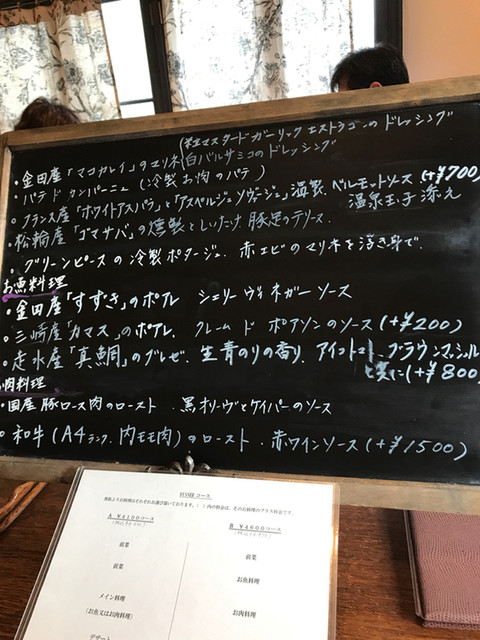 (粒マスタードガーリックエストラゴンのドレッシング
・金田産「マコガレイ」のマリネ(白バルサミコのドレッシング)
・パテ ド カンパーニュ (冷製お肉のパテ)
・フランス産「ホワイトアスパラ」と「アスペルジュソヴァージュ」温製 ベルモットソース (+¥700)
温泉玉子添え
・松輪産「ゴマサバ」の燻製としいたけ、豚足のテリーヌ.
・グリーンピースの冷製ポタージュ. 赤エビのマリネを浮き身で.
お魚料理
・金田産「すずき」のポアレ シェリーヴィネガーソース
・三崎産「カマス」のポアレ. クレーム ド ポアソンのソース(+¥200)
・走水産「真鯛」のブレゼ. 生青のりの香り. アイコトマト、ブラウンマッシュルーム
と共に(+¥800)
肉料理
・国産豚ロース肉のロースト. 黒オリーヴとケイパーのソース
・和牛(A4ランク. 内モモ肉)のロースト. 赤ワインソース(+¥1500)
コース
A ¥4100コース
B ¥4600コース
前菜
前菜
前菜
お魚料理
メイン料理
(お魚又はお肉料理)
お肉料理
デザート